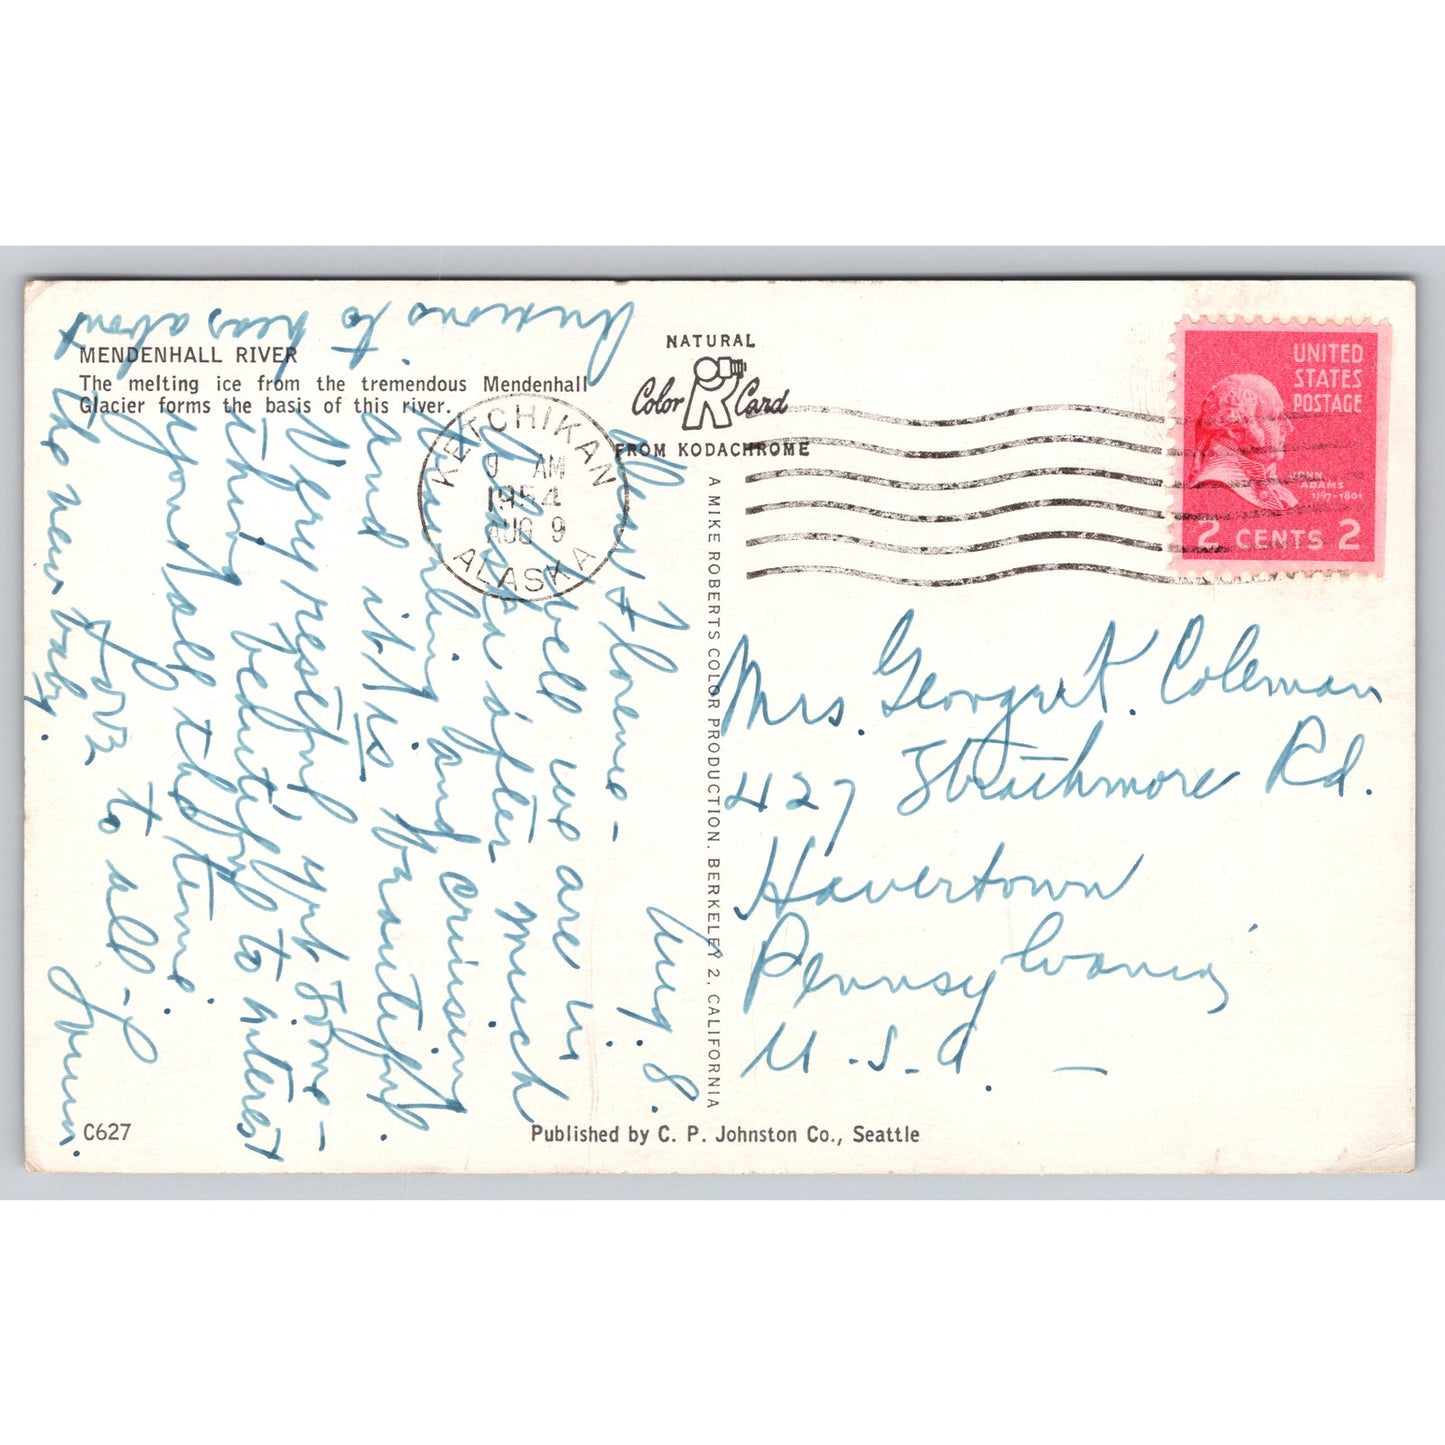 MENDENHALL RIVER
The melting ice from the tremendous Mendenhall
Glacier forms the basis of this river.
NATURAL
Color Card
FROM KODACHROME
KETCHIKAN
9 AM
1954
AUG 9
ALASKA
UNITED
STATES
POSTAGE
JOHN
ADAMS
1797-1801
2 CENTS 2
A MIKE ROBERTS COLOR PRODUCTION, BERKELEY 2, CALIFORNIA
Aug. 8.
Dear Florence -
Well we are in
Alaska after much
traveling and cruising
and it is beautiful.
Very restful yet some-
thing beautiful to interest
you all the time.
Love to all -
Anxious to hear about
the new baby.
Mrs. George K. Coleman
427 Strathmore Rd.
Havertown
Pennsylvania
U.S.A. -
C627
Published by C. P. Johnston Co., Seattle